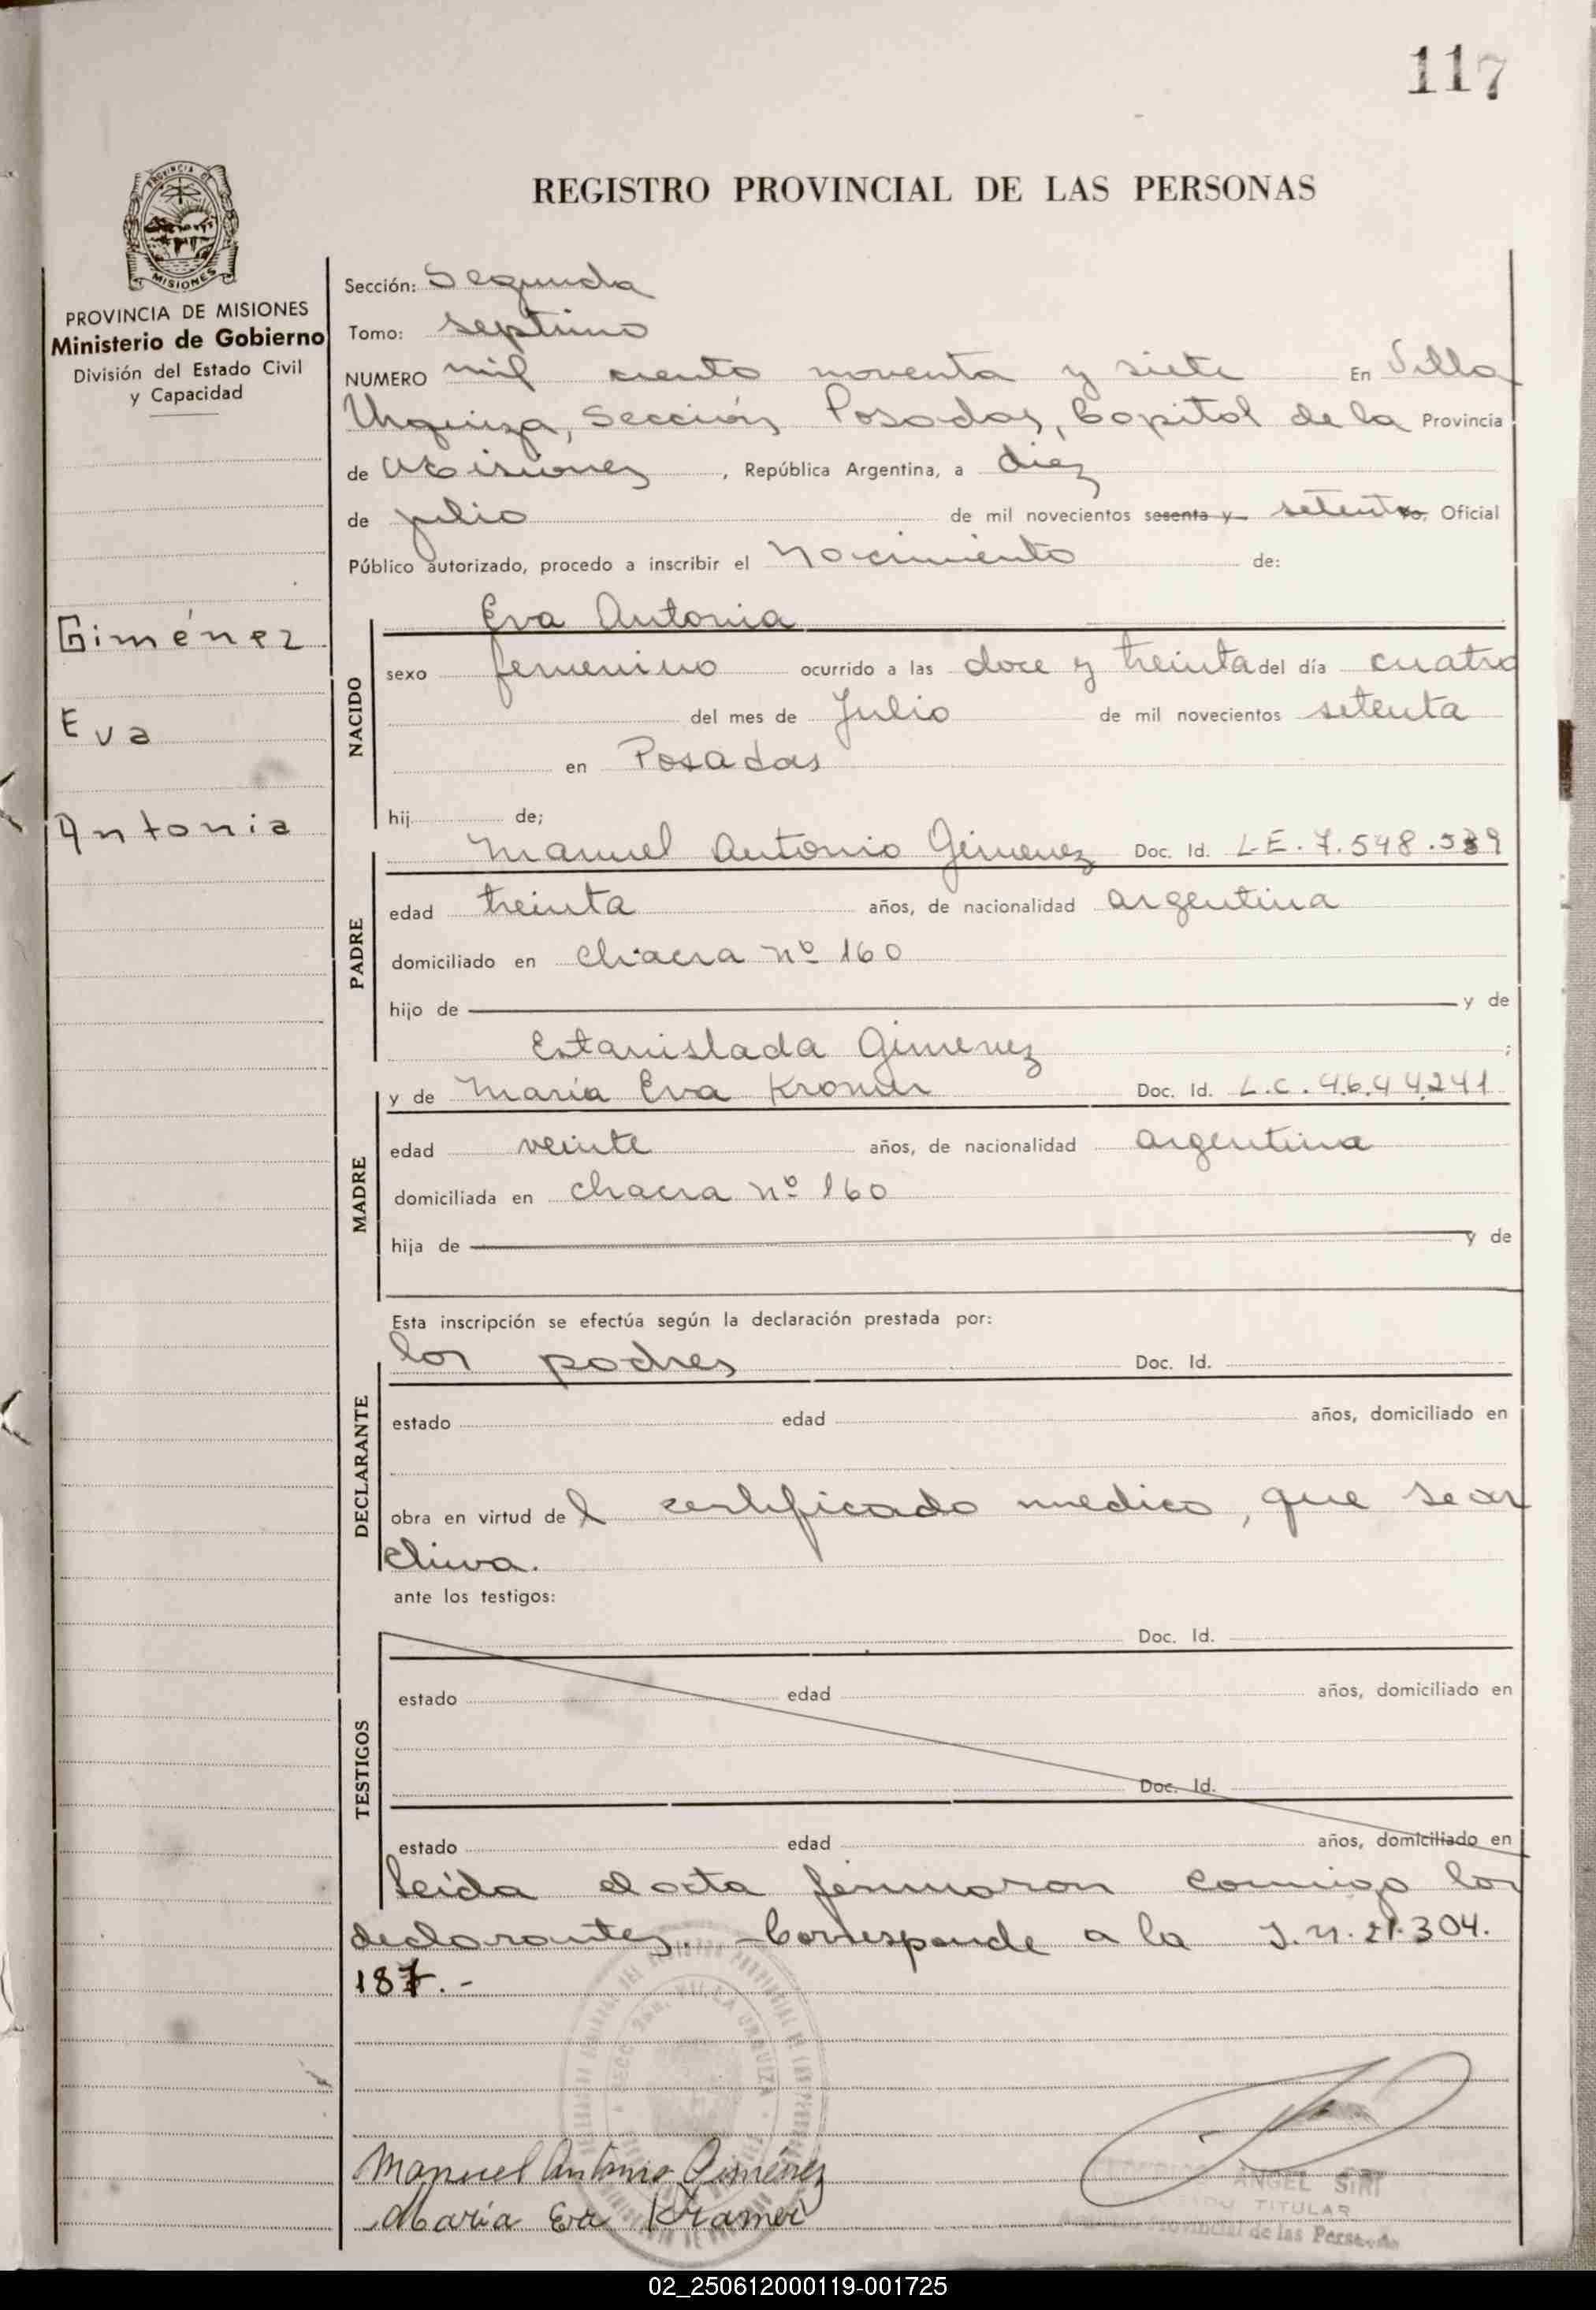 117
REGISTRO PROVINCIAL DE LAS PERSONAS
PROVINCIA DE MISIONES
Ministerio de Gobierno
División del Estado Civil
y Capacidad
Giménez
Eva
Antonia
Sección: Segunda
Tomo: septimo
NUMERO mil ciento noventa y siete En Villa
Urquiza, Sección Posadas, Capital de la Provincia
de Misiones, República Argentina, a diez
de julio de mil novecientos sesenta y setenta, Oficial
Público autorizado, procedo a inscribir el Nacimiento de:
NACIDO
Eva Antonia
sexo femenino ocurrido a las doce y treinta del día cuatro
del mes de Julio de mil novecientos setenta
en Posadas
hij de;
PADRE
Manuel Antonio Gimenez Doc. Id. L.E. 7.548.539
edad treinta años, de nacionalidad argentina
domiciliado en chacra nº 160
hijo de y de
Estanislada Gimenez ;
MADRE
y de Maria Eva Doc. Id. L.C. 4.6.44.241
edad veinte años, de nacionalidad argentina
domiciliada en chacra nº 160
hija de y de
Esta inscripción se efectúa según la declaración prestada por:
DECLARANTE
los padres Doc. Id.
estado edad años, domiciliado en
obra en virtud del certificado medico, que se ar
chiva.
ante los testigos:
TESTIGOS
Doc. Id.
estado edad años, domiciliado en
Doc. Id.
estado edad años, domiciliado en
Leida el acta firmaron conmigo los
declarantes. - Corresponde a la I.N. 21.304.
187.-
Manuel Antonio Giménez
Maria Eva Kramer
ANGEL SIRI
TITULAR
Provincial de las Personas
02_250612000119-001725